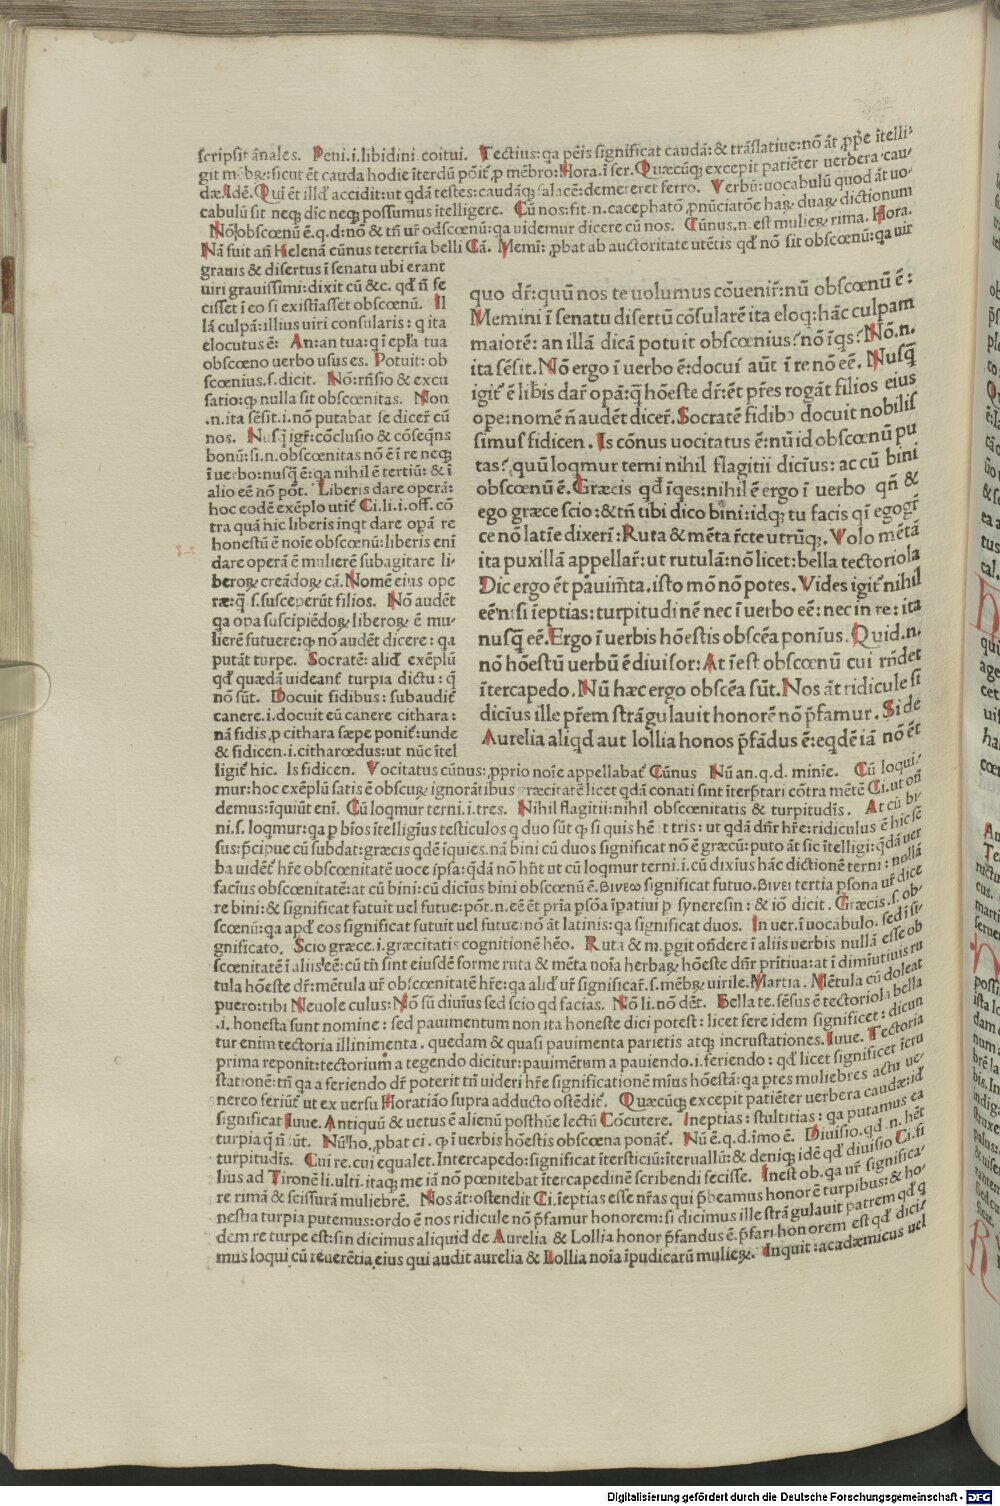 scripsit ãnales. Peni.i.libidini coitui. Tectius:qa pẽis significat caudã:& trãslatiue:nõ ãt ꝓpꝛe ĩtelli-
git mẽbꝝ:sicut ẽt cauda hodie ĩterdũ põit᷑ ꝓ mẽbro:Hora.ĩ ser.Quæcũqꝫ excepit patiẽter uerbera cau-
dæ.Adẽ.Qui ẽt illđ accidit:ut qdã testes:caudãqꝫ salacẽ:demereret ferro. Verbũ:uocabulũ quod ãt uo-
cabulũ sit neqꝫ dic neqꝫ possumus ĩtelligere. Cũ nos:fit.n.cacephatõ ꝓnũciatõe haꝝ duaꝝ dictionum
Nõ obscœnũ ẽ.q.d:nõ & tñ ur̃ odscœnũ:qa uidemur dicere cũ nos. Cũnus.n.est mulieꝝ rima. Hora.
Nã fuit añ Helenã cũnus teterrĩa belli Cã. Memĩ: ꝓbat ab auctoritate utẽtis qđ nõ sit obscœnũ:qa uir
grauis & disertus ĩ senatu ubi erant
uiri grauissimi:dixit cũ &c. qđ ñ fe
cisset ĩ eo si existĩasset obscœnũ. Il
lã culpã:illius uiri consularis: q ita
elocutus ẽ: An:an tua:q ĩ epl̃a tua
obscœno uerbo usus es. Potuit: ob
scœnius.s.dicit. Nõ:rñsio & excu
satio:ꝙ nulla sit obscœnitas. Non
.n.ita sẽsit.i.nõ putabat se dicer̃ cũ
nos. Nusq̃ igr̃:cõclusio & cõseq̃ns
bonũ:si.n.obscœnitas nõ ẽ ĩ re neqꝫ
ĩ uerbo:nusq̃ ẽ:qa nihil ẽ tertiũ: & ĩ
alio eẽ nõ põt. Liberis dare operã:
hoc eodẽ exẽplo utit᷑ Ci.li.i.off. cõ
tra quã hic liberis inqt dare opã re
honestũ ẽ noĩe obscœnũ:liberis enĩ
dare operã ẽ mulierẽ subagitare li-
beroꝝ creãdoꝝ cã. Nomẽ eius ope
ræ:q̃.s.susceperũt filios. Nõ audẽt
qa opa suscipiẽdoꝝ liberoꝝ ẽ mu-
lierẽ futuere:ꝙ nõ audẽt dicere: qa
putãt turpe. Socratẽ: aliđ exẽplũ
qđ quædã uideant᷑ turpia dictu: q̃
nõ sũt. Docuit fidibus: subaudit᷑
canere.i.docuit eũ canere cithara:
nã fidis ꝓ cithara sæpe ponit᷑:unde
& fidicen.i.citharœdus:ut nũc ĩtel
quo dr̃:quũ nos te uolumus cõuenir̃:nũ obscœnũ ẽ:
Memini ĩ senatu disertũ cõsularẽ ita eloq:hãc culpam
maiorẽ: an illã dicã potuit obscœnius? nõ ĩqs? Nõ.n.
ita sẽsit. Nõ ergo ĩ uerbo ẽ:docui aũt ĩ re nõ eẽ. Nusq̃
igit᷑ ẽ libis dar̃ opã:q̃ hõeste dr̃:ẽt pr̃es rogãt filios eius
ope:nomẽ ñ audẽt dicer̃.Socratẽ fidibꝰ docuit nobilis
simus fidicen. Is cõnus uocitatus ẽ:nũ id obscœnũ pu
tas? quũ loqmur terni nihil flagitii dicĩus: ac cũ bini
obscœnũ ẽ.Græcis qđ ĩqes:nihil ẽ ergo ĩ uerbo qñ &
ego græce scio:& tñ tibi dico bini:idqꝫ tu facis qĩ ego gr̃
ce nõ latĩe dixerĩ: Ruta & mẽta r̃cte utrũqꝫ. Volo mẽtã
ita puxillã appellar̃:ut rutulã:nõ licet:bella tectoriola
Dic ergo ẽt pauim̃ta.isto mõ nõ potes. Vides igit᷑ nihil
eẽ nisi ĩeptias:turpitudinẽ nec ĩ uerbo eẽ:nec in re: ita
nusq̃ eẽ.Ergo ĩ uerbis hõestis obscẽa ponĩus. Quid.n.
nõ hõestũ uerbũ ẽ diuisor: At ĩest obscœnũ cui rñdet
ĩtercapedo. Nũ hæc ergo obscẽa sũt. Nos ãt ridicule si
dicĩus ille pr̃em strãgulauit honorẽ nõ p̃famur. Si de
Aurelia aliqd aut lollia honos p̃fãdus ẽ:eqdẽ iã nõ ẽt
ligit᷑ hic. Is fidicen. Vocitatus cũnus:ꝓprio noĩe appellabat᷑ Cũnus Nũ an.q.d. minĩe. Cũ loqui-
mur:hoc exẽplũ satis ẽ obscuꝝ ignorãtibus græcitatẽ licet qdã conati sint ĩterp̃tari cõtra mẽtẽ Ci.ut oñ
demus:ĩquiũt enĩ. Cũ loqmur terni.i.tres. Nihil flagitii:nihil obscœnitatis & turpitudĩs. At cũ bi-
ni.s. loqmur:qa p bĩos ĩtelligĩus testiculos q duo sũt ꝙ si quis hẽt tris: ut qdã dñr hr̃e:ridiculus ẽ hic sẽ
sus:p̃cipue cũ subdat:græcis qdẽ ĩquies.nã bini cũ duos significat nõ ẽ græcũ:puto ãt sic ĩtelligi:q̃dã uer
ba uidẽt᷑ hr̃e obscœnitatẽ uoce ĩpsa:q̃dã nõ hñt ut cũ loqmur terni.i.cũ dixĩus hãc dictionẽ terni: nullã
facĩus obscœnitatẽ:at cũ bini:cũ dicĩus bini obscœnũ ẽ.βινεω significat futuo.βινει tertia ꝑsona ur̃ dice
re bini:& significat fatuit uel futue:põt.n.eẽ ẽt prĩa ꝑsõa ĩpatiui ꝑ syneresin: & iõ dicit. Græcis.s.ob-
scœnũ:qa apđ eos significat futuit uel futue:nõ ãt latinis:qa significat duos. In uer.ĩ uocabulo. sed i si-
gnificato. Scio græce.i.græcitatis cognitionẽ hẽo. Ruta & m.pgit oñdere ĩ aliis uerbis nullã esse ob
scœnitatẽ ĩ aliis eẽ:cũ tñ sint eiusdẽ forme ruta & mẽta noĩa herbaꝝ hõeste dñr prĩtiua:at ĩ dimĩutiuis ru
tula hõeste dr̃:mẽtula ur̃ obscœnitatẽ hr̃e:qa aliđ ur̃ significar̃.s.mẽbꝝ uirile.Martia. Mẽtula cũ doleat
puero:tibi Neuole culus:Nõ sũ diuĩus sed scio qd facias. Nõ li.nõ dẽt. Bella te.sẽsus ẽ tectoriola bella
.i. honesta sunt nomine: sed pauimentum non ita honeste dici potest: licet fere idem significet: dicun
tur enim tectoria illinimenta. quedam & quasi pauimenta parietis atqꝫ incrustationes. Iuue. Tectoria
prima reponit:tectorium a tegendo dicitur:pauimẽtum a pauiendo.i.feriendo: qđ licet significet ĩcru
stationẽ:tñ qa a feriendo dr̃ poterit tñ uideri hr̃e significationẽ mĩus hõestã:qa ꝑtes muliebres actu ue-
nereo feriũt᷑ ut ex uersu Horatião supra adducto ostẽdit᷑. Quæcũqꝫ excepit patiẽter uerbera caudæ:iđ
significat Iuue. Antiquũ & uetus ẽ alienũ posthũe lectũ Cõcutere. Ineptias: stultitias: qa putamus ea
turpia q̃ ñ sũt. Nũ ho.ꝓbat ci. ꝙ ĩ uerbis hõestis obscœna ponãt᷑. Nũ ẽ.q.d.ĩmo ẽ. Diuisio.qđ.n. hẽt
turpitudĩs. Cui re.cui equalet.Intercapedo:significat ĩtersticiũ:ĩteruallũ:& deniqꝫ idẽ qđ diuisio Ci.fi
lius ad Tironẽ li.ulti.itaqꝫ me iã nõ pœnitebat ĩtercapedinẽ scribendi fecisse. Inest ob.qa ur̃ significa-
re rimã & scissurã muliebrẽ. Nos ãt:ostendit Ci.ĩeptias esse nr̃as qui p̃beamus honorẽ turpibus:& ho-
nestia turpia putemus:ordo ẽ nos ridicule nõ p̃famur honorem:si dicimus ille strãgulauit patrem qđ q̃
dem re turpe est:sin dicimus aliquid de Aurelia & Lollia honor p̃fandus ẽ.p̃fari honorem est qđ dicĩ
mus loqui cũ reuerẽtia eius qui audit aurelia & Lollia noĩa ĩpudicarũ mulieꝝ. Inquit:acadæmicus uel
Digitalisierung gefördert durch die Deutsche Forschungsgemeinschaft - DFG